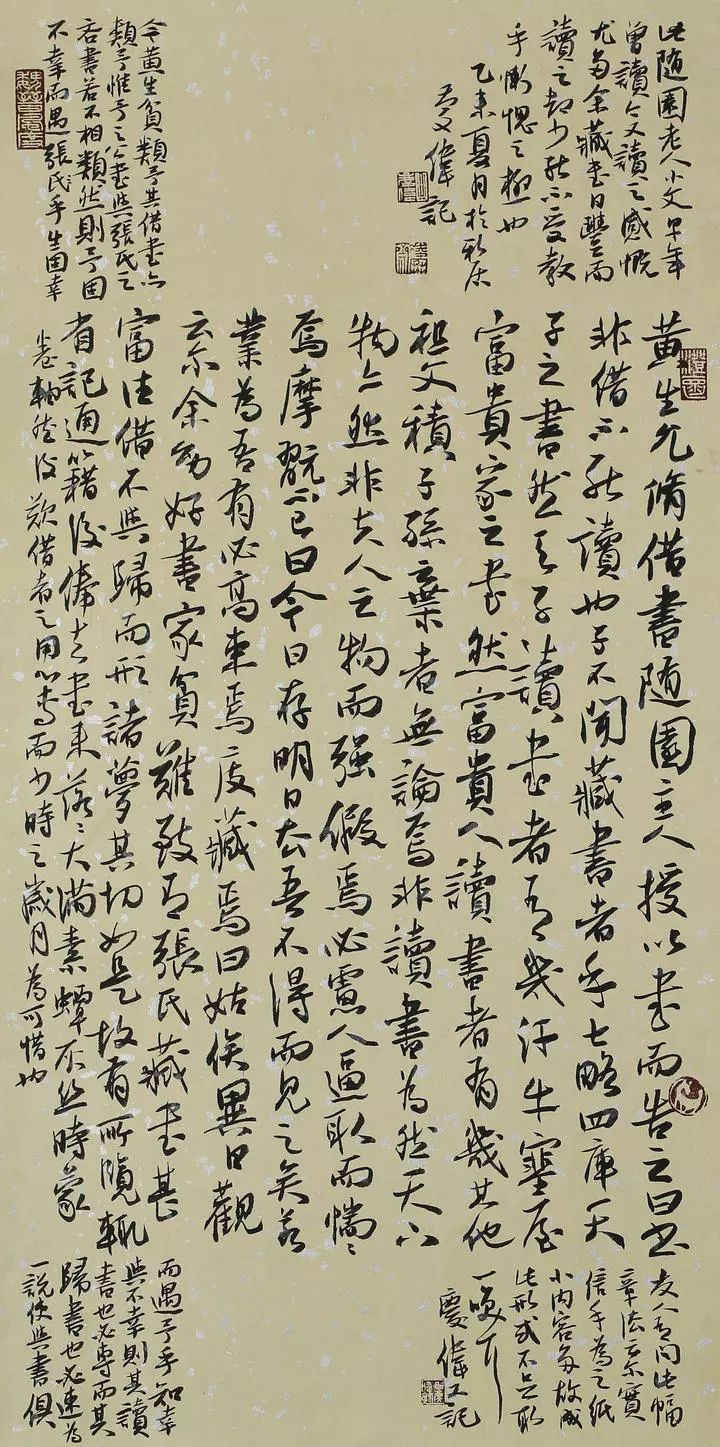 黃生允脩借書隨園主人授以書而告之曰書
非借不能讀也子不聞藏書者乎七略四庫天
子之書然天子讀書者有幾汗牛塞屋
富貴家之書然富貴人讀書者有幾其他
祖父積子孫棄者無論焉非讀書為然天下
物亦然非夫人之物而强假焉必慮人逼取而惴〻
焉摩翫不已曰今日存明日去吾不得而見之矣若
業為吾有必高束焉庋藏焉曰姑俟異日觀
云爾余幼好書家貧難致有張氏藏書甚
富往借不與歸而形諸夢其切如是故有所覽輒
省記通籍後俸去書來落〻大滿素蟫灰絲時蒙
卷軸然後歎借者之用心專而少時之歲月為可惜也
今黃生貧類予其借書亦
類予惟予之公書與張氏之
吝書若不相類然則予固
不幸而遇張氏乎生固幸
而遇予乎知幸
與不幸則其讀
書也必專而其
歸書也必速為
一說使與書俱
此隨園老人小文早年
曾讀今又讀之感慨
尤多余藏書日豐而
讀之却少能不受教
乎慚愧之極也
乙未夏月於新居
慶偉記
友人有問此幅
章法云爾實
信手為之紙
小内容多故成
此形式不足取
一噱耳
慶偉又記